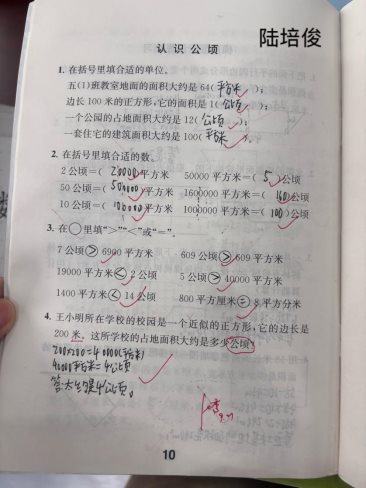 陆培俊
认识公顷
1. 在括号里填合适的单位。
五(1)班教室地面的面积大约是64(平方米);
边长100米的正方形,它的面积是1(公顷);
一个公园的占地面积大约是12(公顷);
一套住宅的建筑面积大约是100(平方米)。
2. 在括号里填合适的数。
2公顷=(20000)平方米 50000平方米=(5)公顷
50公顷=(500000)平方米 1600000平方米=(160)公顷
10公顷=(100000)平方米 1000000平方米=(100)公顷
3. 在○里填“>”“<”或“=”。
7公顷>6900平方米 609公顷>609平方米
19000平方米<2公顷 5公顷>40000平方米
1400平方米<14公顷 800平方厘米=8平方分米
4. 王小明所在学校的校园是一个近似的正方形,它的边长是
200米,这所学校的占地面积大约是多少公顷?
200×200=40000(平方米)
40000平方米=4公顷
答:大约是4公顷。
10